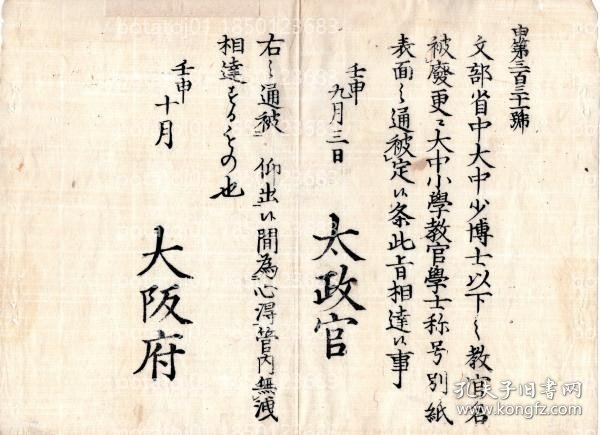 申第三百三十一號
文部省中大中少博士以下之教官名
被廢更ニ大中小學教官學士称号別紙
表面之通被定候条此旨相達候事
壬申
九月三日
太政官
右之通被 仰出候間為心得管内無洩
相達するもの也
壬申
十月
大阪府
孔夫子旧书网
www.kongfz.com
botatoji01 1850123683